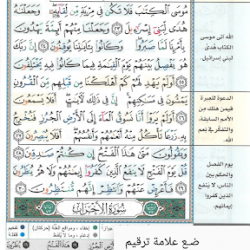 مُوسَى ٱلْكِتَٰبَ فَلَا تَكُن فِى مِرْيَةٍ مِّن لِّقَآئِهِۦ وَجَعَلْنَٰهُ
هُدًى لِّبَنِىٓ إِسْرَٰٓءِيلَ ٢٣ وَجَعَلْنَا مِنْهُمْ أَئِمَّةً يَهْدُونَ
بِأَمْرِنَا لَمَّا صَبَرُوا۟ وَكَانُوا۟ بِـَٔايَٰتِنَا يُوقِنُونَ ٢٤ إِنَّ رَبَّكَ
هُوَ يَفْصِلُ بَيْنَهُمْ يَوْمَ ٱلْقِيَٰمَةِ فِيمَا كَانُوا۟ فِيهِ يَخْتَلِفُونَ
٢٥ أَوَلَمْ يَهْدِ لَهُمْ كَمْ أَهْلَكْنَا مِن قَبْلِهِم مِّنَ ٱلْقُرُونِ
يَمْشُونَ فِى مَسَٰكِنِهِمْ إِنَّ فِى ذَٰلِكَ لَـَٔايَٰتٍ أَفَلَا يَسْمَعُونَ
٢٦ أَوَلَمْ يَرَوْا۟ أَنَّا نَسُوقُ ٱلْمَآءَ إِلَى ٱلْأَرْضِ ٱلْجُرُزِ فَنُخْرِجُ
بِهِۦ زَرْعًا تَأْكُلُ مِنْهُ أَنْعَٰمُهُمْ وَأَنفُسُهُمْ أَفَلَا يُبْصِرُونَ
٢٧ وَيَقُولُونَ مَتَىٰ هَٰذَا ٱلْفَتْحُ إِن كُنتُمْ صَٰدِقِينَ
٢٨ قُلْ يَوْمَ ٱلْفَتْحِ لَا يَنفَعُ ٱلَّذِينَ كَفَرُوٓا۟ إِيمَٰنُهُمْ وَلَا هُمْ يُنظَرُونَ
٢٩ فَأَعْرِضْ عَنْهُمْ وَٱنتَظِرْ إِنَّهُم مُّنتَظِرُونَ ٣٠
سُورَةُ الأَحْزَابِ
الله آتى موسى
الكتاب هدى
لبني إسرائيل.
الدعوة للعبرة
فيمن هلك من
الأمم السابقة،
والتفكر بنعم
الله.
يوم الفصل
والحكم بين
الناس، لا ينفع
الذين كفروا
إيمانهم.
ضع علامة ترقيم